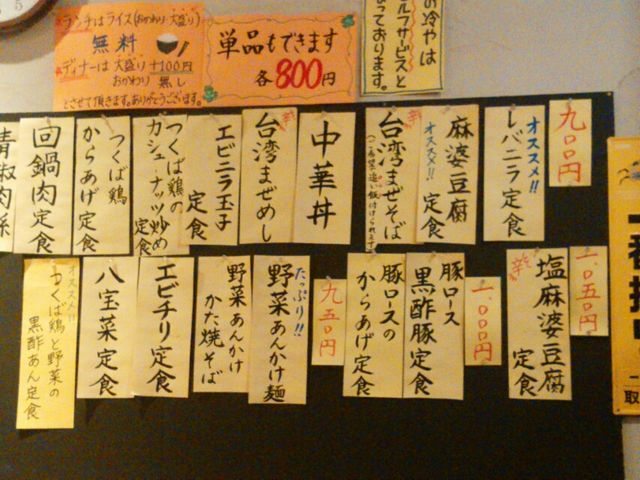 ランチはライス(おかわり 大盛り)
無料
ディナーは 大盛り +100円
おかわり 無し
とさせて頂きます。ありがとうございます。
単品もできます
各800円
の冷やは
ルフサービスと
なっております。
九〇〇円
オススメ!!
レバニラ定食
麻婆豆腐
オススメ!!
定食
台湾まぜそば
中華丼
台湾まぜめし
エビニラ玉子
定食
つくば鶏の
カシューナッツ炒め
定食
つくば鶏
からあげ定食
回鍋肉定食
青椒肉絲
一〇五〇円
塩麻婆豆腐
定食
一〇〇〇円
豚ロース
黒酢豚定食
豚ロースの
からあげ定食
九五〇円
たっぷり!!
野菜あんかけ麺
野菜あんかけ
かた焼そば
エビチリ定食
八宝菜定食
オススメ!!
つくば鶏と野菜の
黒酢あん定食